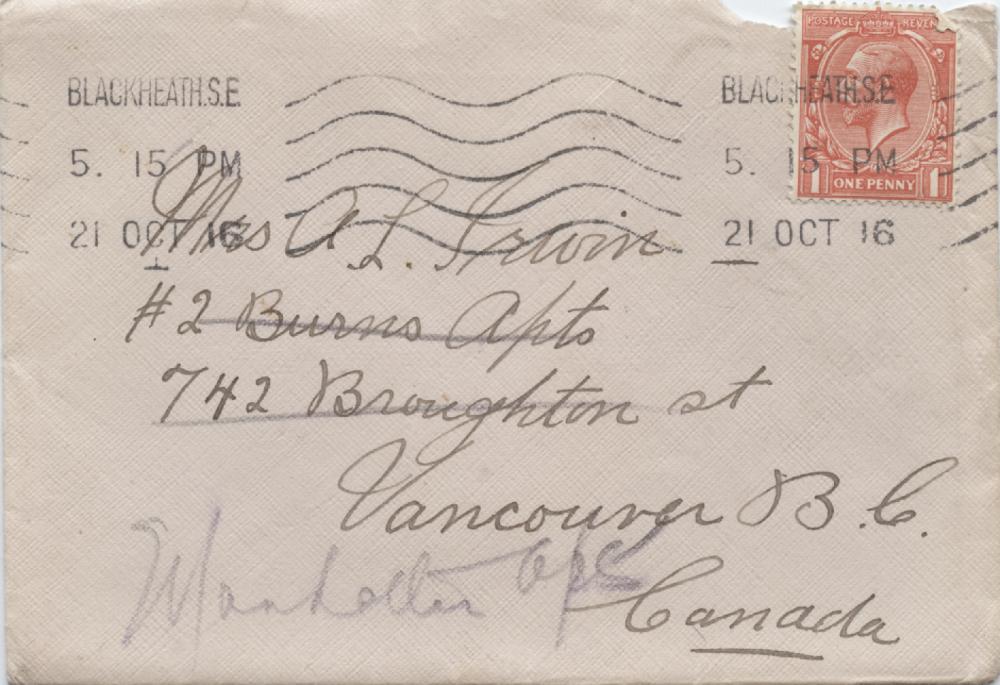 POSTAGE REVEN
BLACKHEATH.S.E. BLACKHEATH.S.E
5. 15 PM 5. 15 PM
1 ONE PENNY 1
21 OCT 16 21 OCT 16
Mrs A. L. Irwin
#2 Burns Apts
742 Broughton st
Vancouver B.C.
Manhatten Apts
Canada